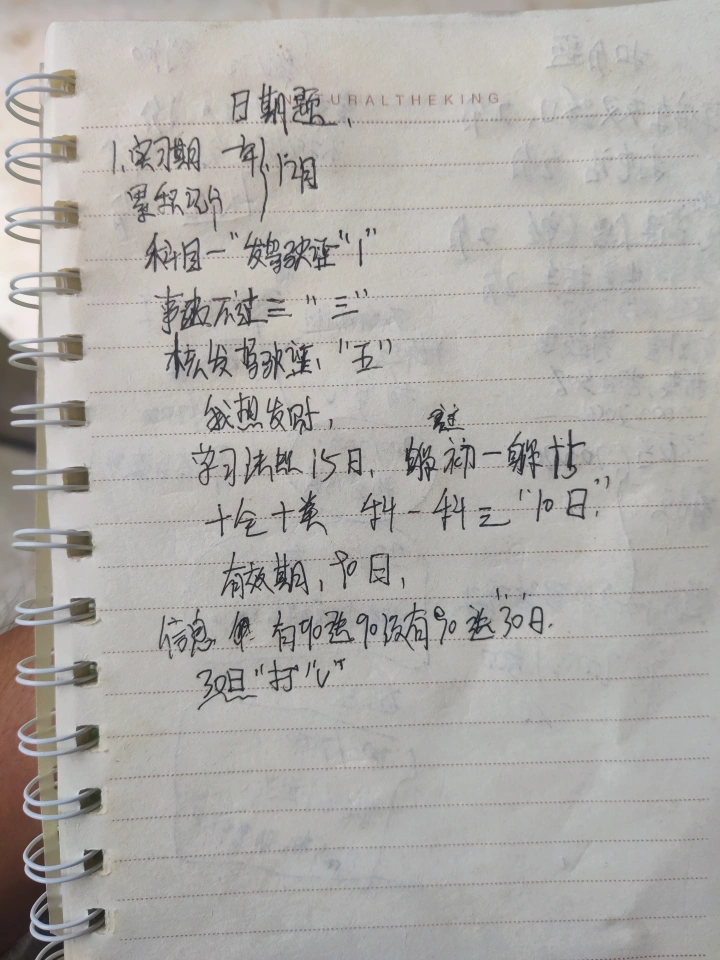 NATURALTHEKING
日期题,
1.实习期 一年 } 12月
累积记分
科目一"发驾驶证"1"
事故不过三"三"
核发驾驶证、"五"
我想发财,
学习法规15日, 躲初一躲十五
十仓十美 科一科三"10日."
有效期,90日,
信息 有90选90没有90选"30日.
30日"打"√"